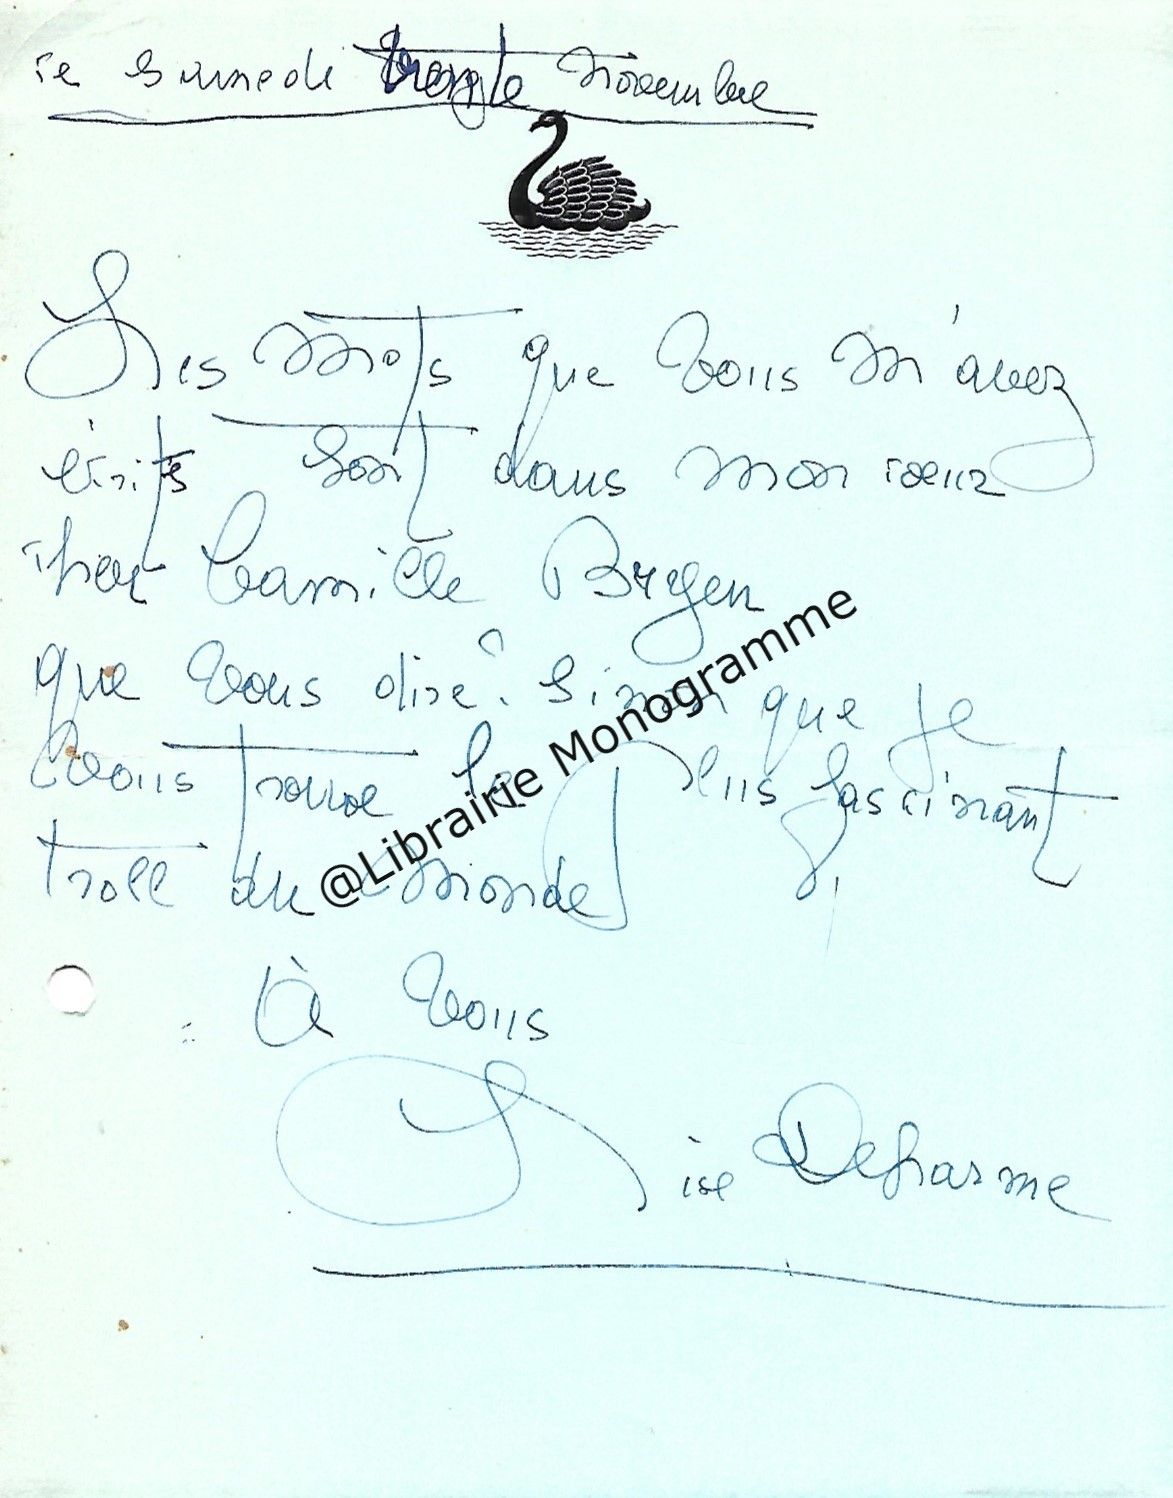 ce Samedi trente Novembre
Les mots que vous m'avez
écrits sont dans mon cœur
cher Camille Bryen
que vous dire ? Sinon que je
vous trouve le plus fascinant
troll du monde
À vous
Lise Deharme
@Librairie Monogramme